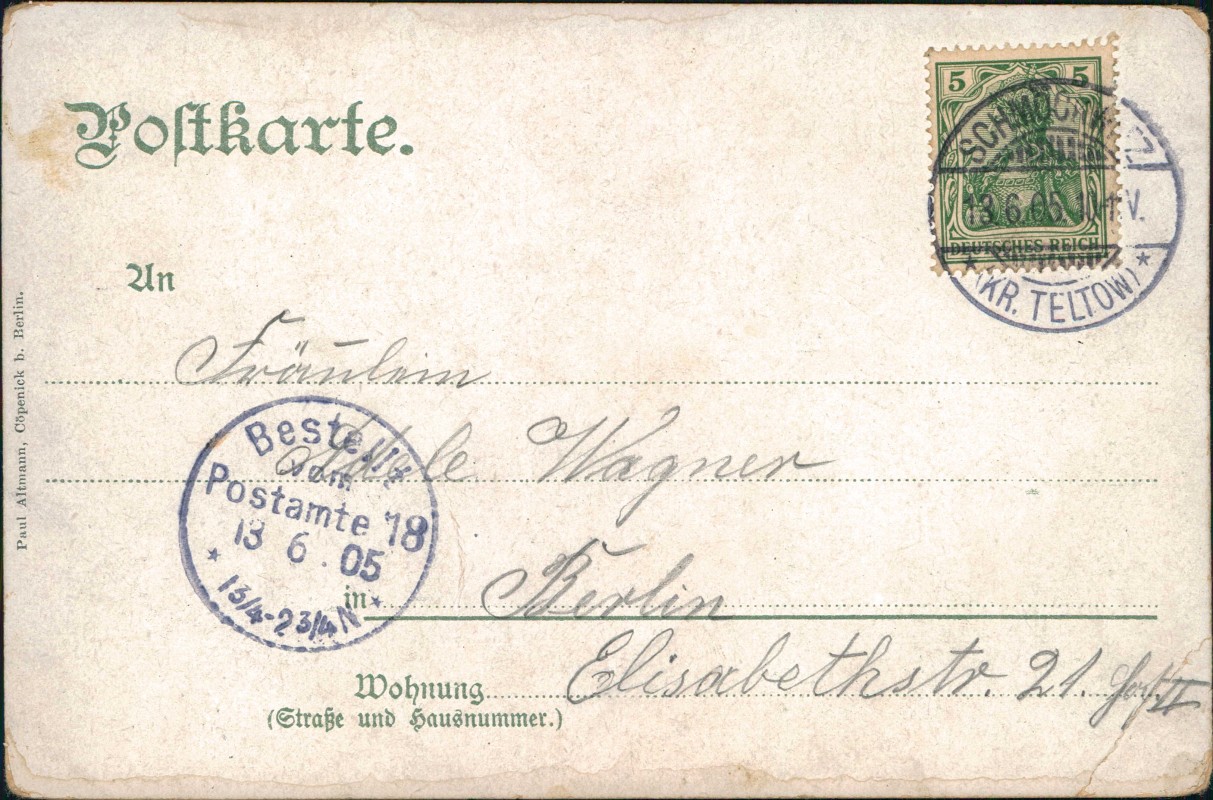 Postkarte.
5 5
SCHMÖCKWITZ
13.6.05. 10-11V.
DEUTSCHES REICH
* (KR. TELTOW) *
An
Fräulein
Adele Wagner
Bestellt
vom
Postamte 18
13 6. 05
* 1 3/4-2 3/4 N *
in Berlin
Wohnung Elisabethstr. 21. Hof II
(Straße und Hausnummer.)
Paul Altmann, Cöpenick b. Berlin.